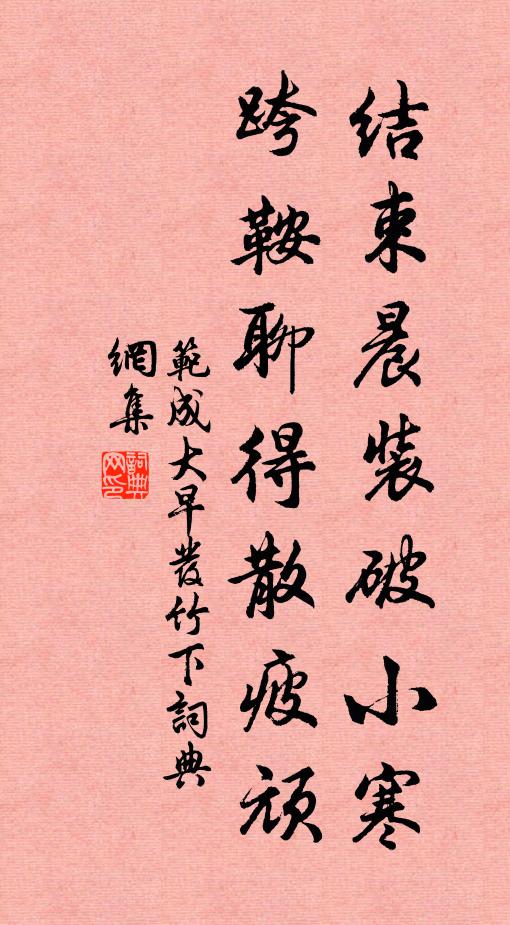 结束晨装破小寒
跨鞍聊得散疲顽
範成大早發竹下詞典
網集
詞典
网印